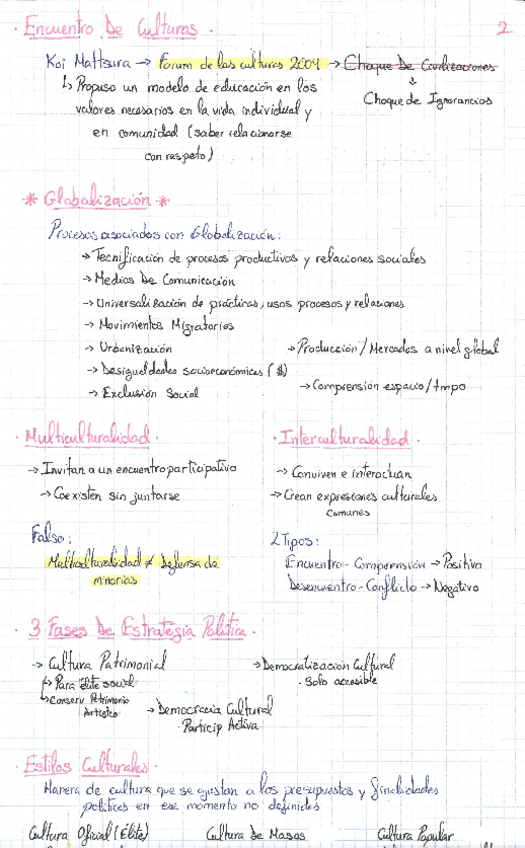 · Encuentro De Culturas · 2
Koi Mattsura → Forum de las culturas 2004 → Choque De Civilizaciones
↳ Propuso un modelo de educación en los
Choque de Ignorancias
valores necesarios en la vida individual y
en comunidad (saber relacionarse
con respeto)
* Globalización *
Procesos asociados con Globalización:
→ Tecnificación de procesos productivos y relaciones sociales
→ Medios De Comunicación
→ Universalización de prácticas, usos procesos y relaciones
→ Movimientos Migratorios
→ Urbanización
→ Producción / Mercados a nivel global
→ Desigualdades socioeconómicas ($)
→ Comprensión espacio/tmpo
→ Exclusión Social
· Multiculturalidad ·
→ Invitan a un encuentro participativo
→ Coexisten sin juntarse
Falso:
Multiculturalidad ≠ Defensa de
minorias
· Interculturalidad ·
→ Conviven e interactuan
→ Crean expresiones culturales
comunes
2 Tipos:
Encuentro - Comprensión → Positivo
Desencuentro - Conflicto → Negativo
· 3 Fases De Estrategia Política ·
→ Cultura Patrimonial
↳ Para élite social
↳ Conserv Patrimonio
Artístico
→ Democracia Cultural
· Particip Activa
→ Democratización Cultural
· Solo accesible
· Estilos Culturales ·
Manera de cultura que se ajustan a los presupuestos y finalidades
políticas en ese momento no definidas
Cultura Oficial (Élite) Cultura de Masas Cultura Popular